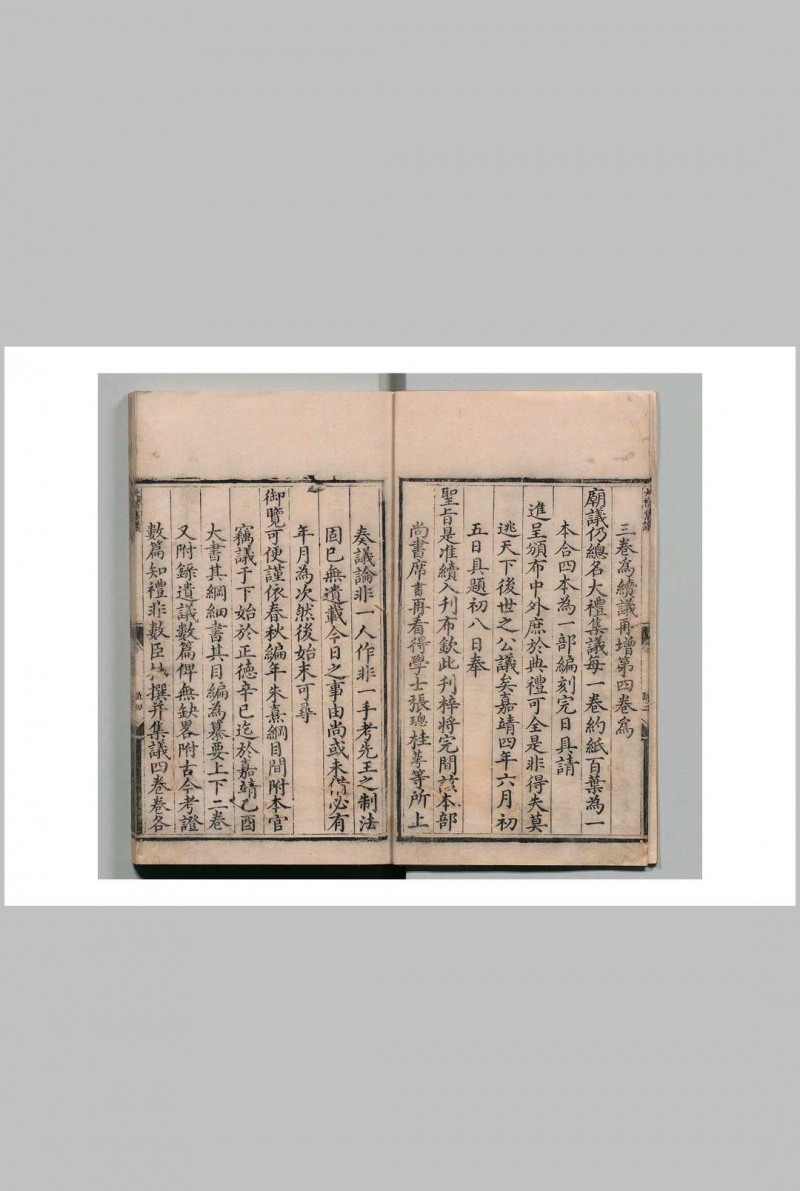 三卷為續議再增第四卷為
廟議仍總名大禮集議每一卷約紙百葉為一
本合四本為一部編刻完日具請
進呈頒布中外庶於典禮可全是非得失莫
逃天下後世之公議矣嘉靖四年六月初
五日具題初八日奉
聖旨是准續入刊布欽此刊梓將完間該本部
尚書席書再看得學士張璁桂萼等所上
奏議論非一人作非一手考先王之制法
固已無遺載今日之事由尚或未備必有
年月為次然後始末可尋
御覽可便謹依春秋編年朱熹綱目間附本官
竊議于下始於正德辛巳迄於嘉靖乙酉
大書其綱細書其目編為纂要上下二卷
又附錄遺議數篇俾無缺畧附古今考證
數篇知禮非數臣共撰并集議四卷卷各